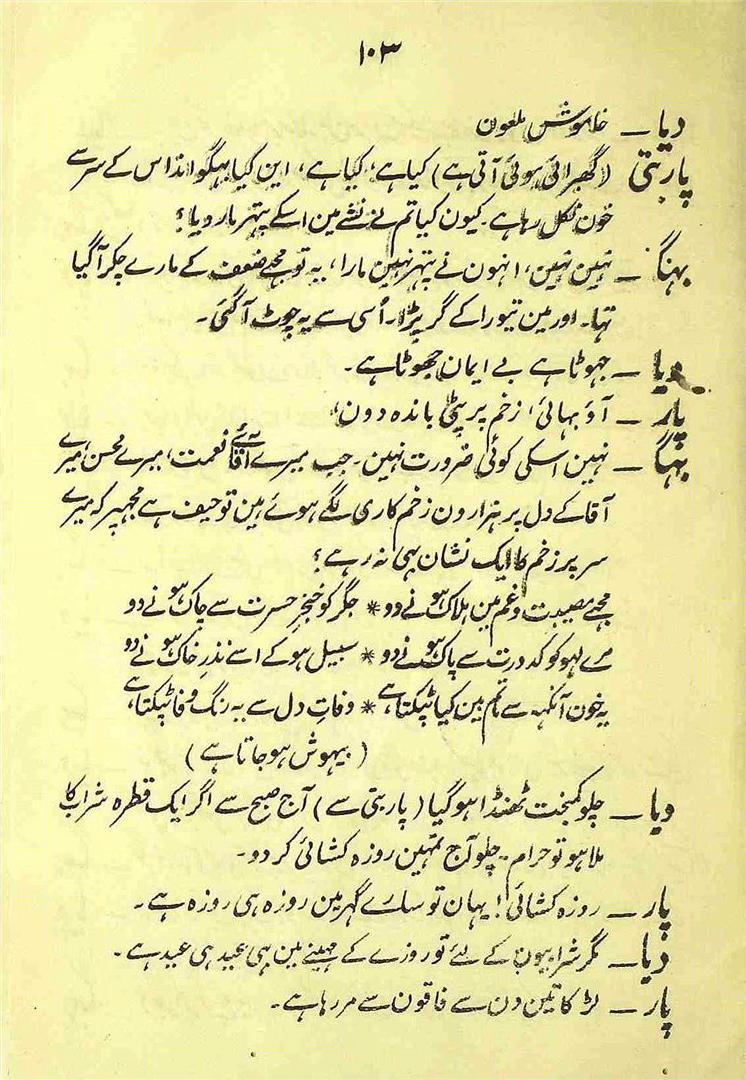 ۱۰۳
دیا ــ خاموش ملعون
پاربتی (گھبرائی ہوئی آتی ہے) کیا ہے، کیا ہے، این کیا بہگوانداس کے سر سے
خون نکل رہا ہے۔ کیون کیا تم نے نشے مین اسکے پتہر مار دیا؟
بہنگا ــ نہین نہین، انہون نے پتہر نہین مارا، یہ تو مجہے ضعف کے مارے چکر آگیا
تہا۔ اور مین تیورا کے گر پڑا۔ اُسی سے یہ چوٹ آگئی۔
دیا ــ جہوٹا ہے بے ایمان جھوٹا ہے۔
پار ــ آؤ بہائی، زخم پر پٹی باندہ دون،
بہگا ــ نہین اسکی کوئی ضرورت نہین۔ جب میرے آقائے نعمت، میرے محسن، میرے
آقا کے دل پر ہزارون زخم کاری لگے ہوئے ہین تو حیف ہے مجہپر کہ میرے
سر پر زخم کا ایک نشان بہی نہ رہے؟
مجہے مصیبت و غم مین ہلاک ہونے دو * جگر کو خنجرِ حسرت سے چاک ہونے دو
مرے لہو کو کدورت سے پاک ہونے دو * سبیل ہو کے اسے نذرِ خاک ہونے دو
یہ خون آنکہہ سے غم مین کیا ٹپکتا ہے * وفاتِ دل سے یہ رنگ وفا ٹپکتا ہے
(بیہوش ہو جاتا ہے)
دیا ــ چلو کمبخت ٹھنڈا ہو گیا (پاربتی سے) آج صبح سے اگر ایک قطرہ شراب کا
ملا ہو تو حرام۔ چلو آج تمہین روزہ کشائی کر دو۔
پار ــ روزہ کشائی! یہان تو سارے گہر مین روزہ ہی روزہ ہے۔
دیا ــ مگر شرابیون کے لئے تو روزے کے مہینے مین بہی عید ہی عید ہے۔
پار ــ لڑکا تین دن سے فاقون سے مر رہا ہے۔